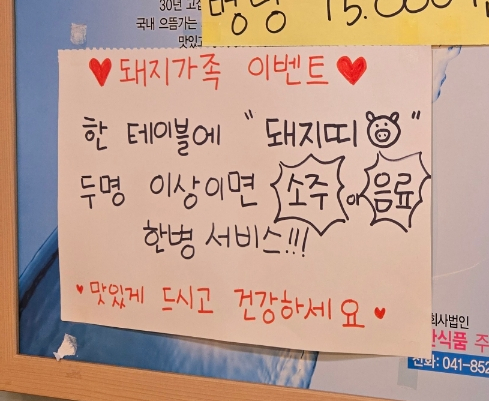 30년 고집
국내 으뜸가는
맛있고
명당 15.000원
♥돼지가족 이벤트♥
한 테이블에 "돼지띠"
두명 이상이면 소주 or 음료
한병 서비스!!!
♥맛있게 드시고 건강하세요♥
회사법인
산식품 주
전화: 041-852